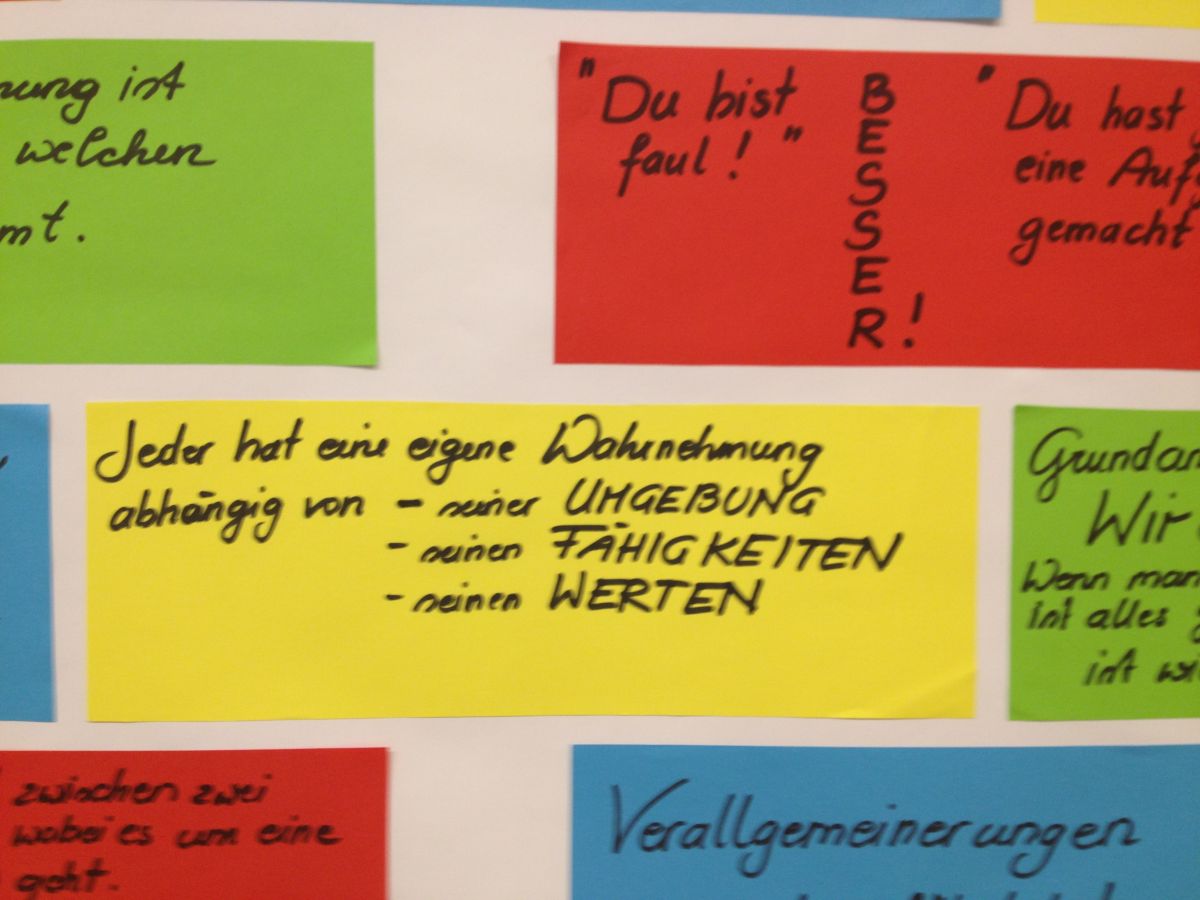 ist
welchen
"Du bist
faul!"
BESSER!
"Du hast
eine
gemacht
Jeder hat eine eigene Wahrnehmung
abhängig von - seiner UMGEBUNG
- seinen FÄHIGKEITEN
- seinen WERTEN
Wir
Wenn man
ist alles
ist
zwischen zwei
wobei es um eine
geht.
Verallgemeinerungen